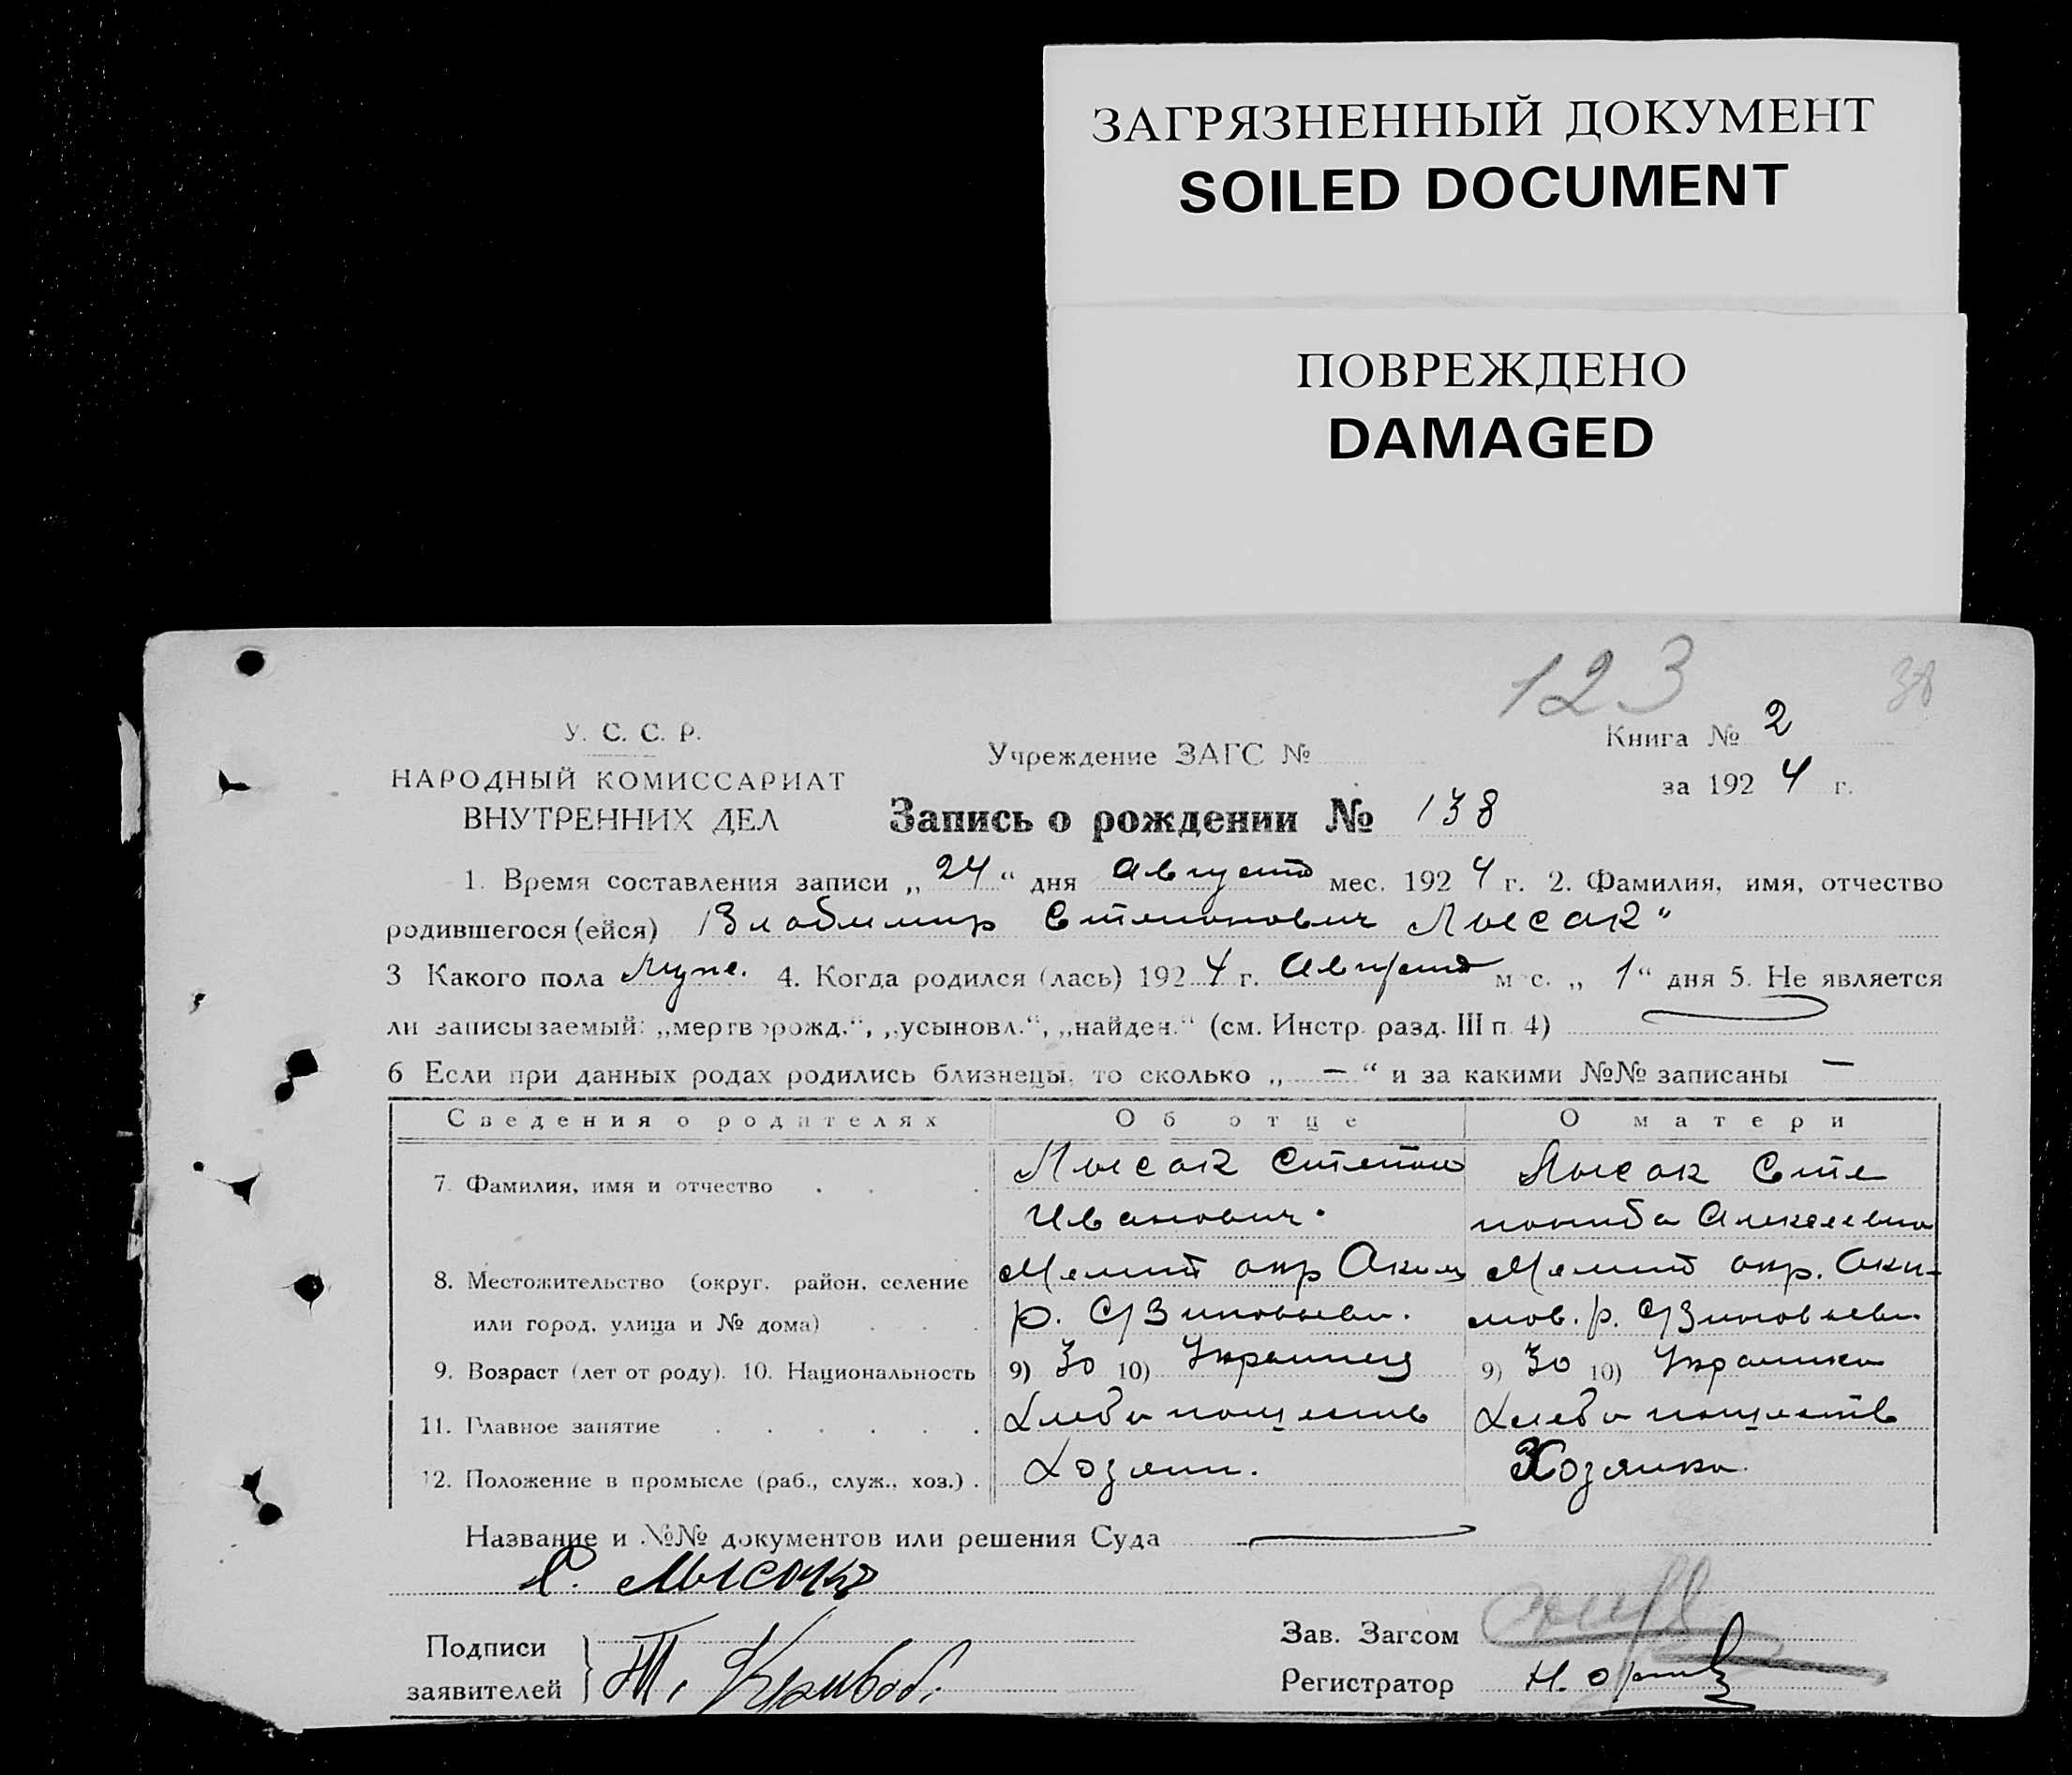 ЗАГРЯЗНЕННЫЙ ДОКУМЕНТ
SOILED DOCUMENT
ПОВРЕЖДЕНО
DAMAGED
123 38
У. С. С. Р.
НАРОДНЫЙ КОМИССАРИАТ
ВНУТРЕННИХ ДЕЛ
Учреждение ЗАГС №
Книга № 2
за 1924 г.
Запись о рождении № 138
1. Время составления записи „24“ дня Августа мес. 1924 г. 2. Фамилия, имя, отчество
родившегося (ейся) Владимир Степанович Лысак"
3 Какого пола Муж. 4. Когда родился (лась) 1924 г. Августа мес. „1“ дня 5. Не является
ли записываемый: „мертворожд.“, „усыновл.“, „найден.“ (см. Инстр. разд. III п. 4)
6 Если при данных родах родились близнецы, то сколько „—“ и за какими №№ записаны —
Сведения о родителях Об отце О матери
7. Фамилия, имя и отчество Лысак Степан Лысак Сте
Иванович. Алексеевна
8. Местожительство (округ, район, селение Мелит окр Аким Мелит окр. Аки-
или город, улица и № дома) р. С/Зиновьеви. мов. р. С/Зиновьеви.
9. Возраст (лет от роду). 10. Национальность 9) 30 10) Украинец 9) 30 10) Украинка
11. Главное занятие Хлебопашеств Хлебопашеств
12. Положение в промысле (раб., служ., хоз.) Хозяин. Хозяйка.
Название и №№ документов или решения Суда
С. Лысак
Подписи
заявителей Т.
Зав. Загсом
Регистратор Н.